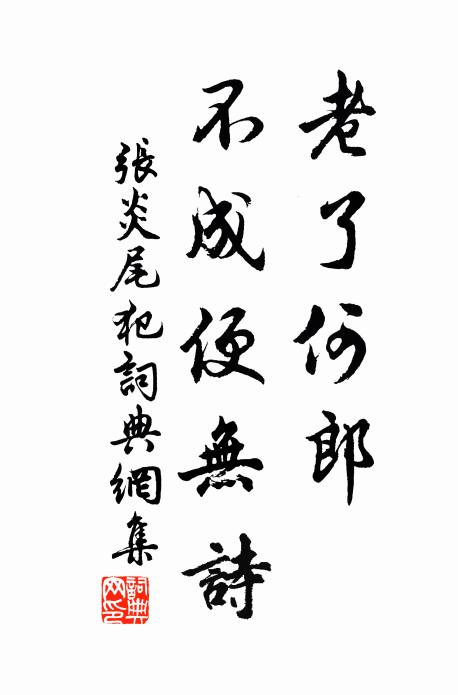 老了何郎
不成便無詩
張炎尾犯詞典網集
詞典網印